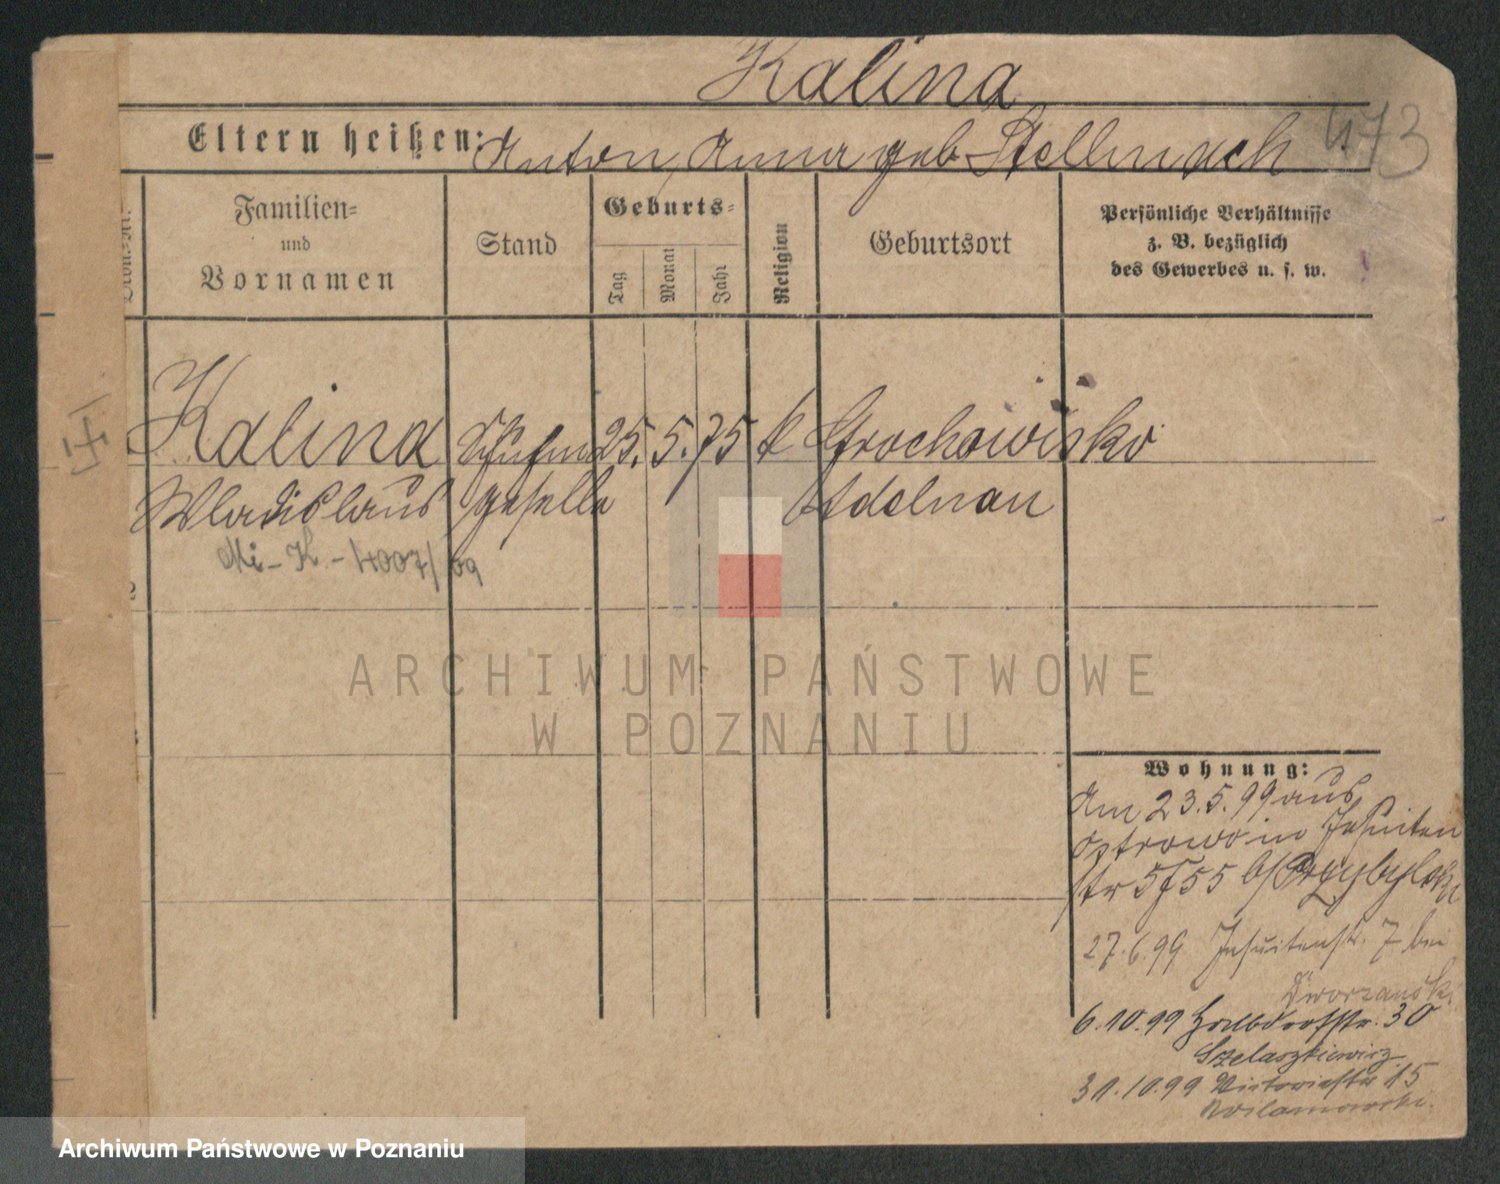 Kalina
Eltern heißen: Anton, Anna geb Stellmach
473
Familien=
und
Vornamen
Stand
Geburts=
Tag
Monat
Jahr
Religion
Geburtsort
Persönliche Verhältnisse
z. B. bezüglich
des Gewerbes u. s. w.
Kalina 25. 5. 75 k Grochowisko
Wladislaus geselle Adelnau
Mi - K - 4007/09
ARCHIWUM PAŃSTWOWE
W POZNANIU
Wohnung:
Am 23.5.99 aus
Ostrowo in Jesuiten
str 5 b/Przybylski
27.6.99 Jesuitenstr. 7 bei
Dworzanski
6.10.99 Halbdorfstr. 30
Szelaszkiewicz
31.10.99 Victoriastr 15
Wilamowski.
Archiwum Państwowe w Poznaniu